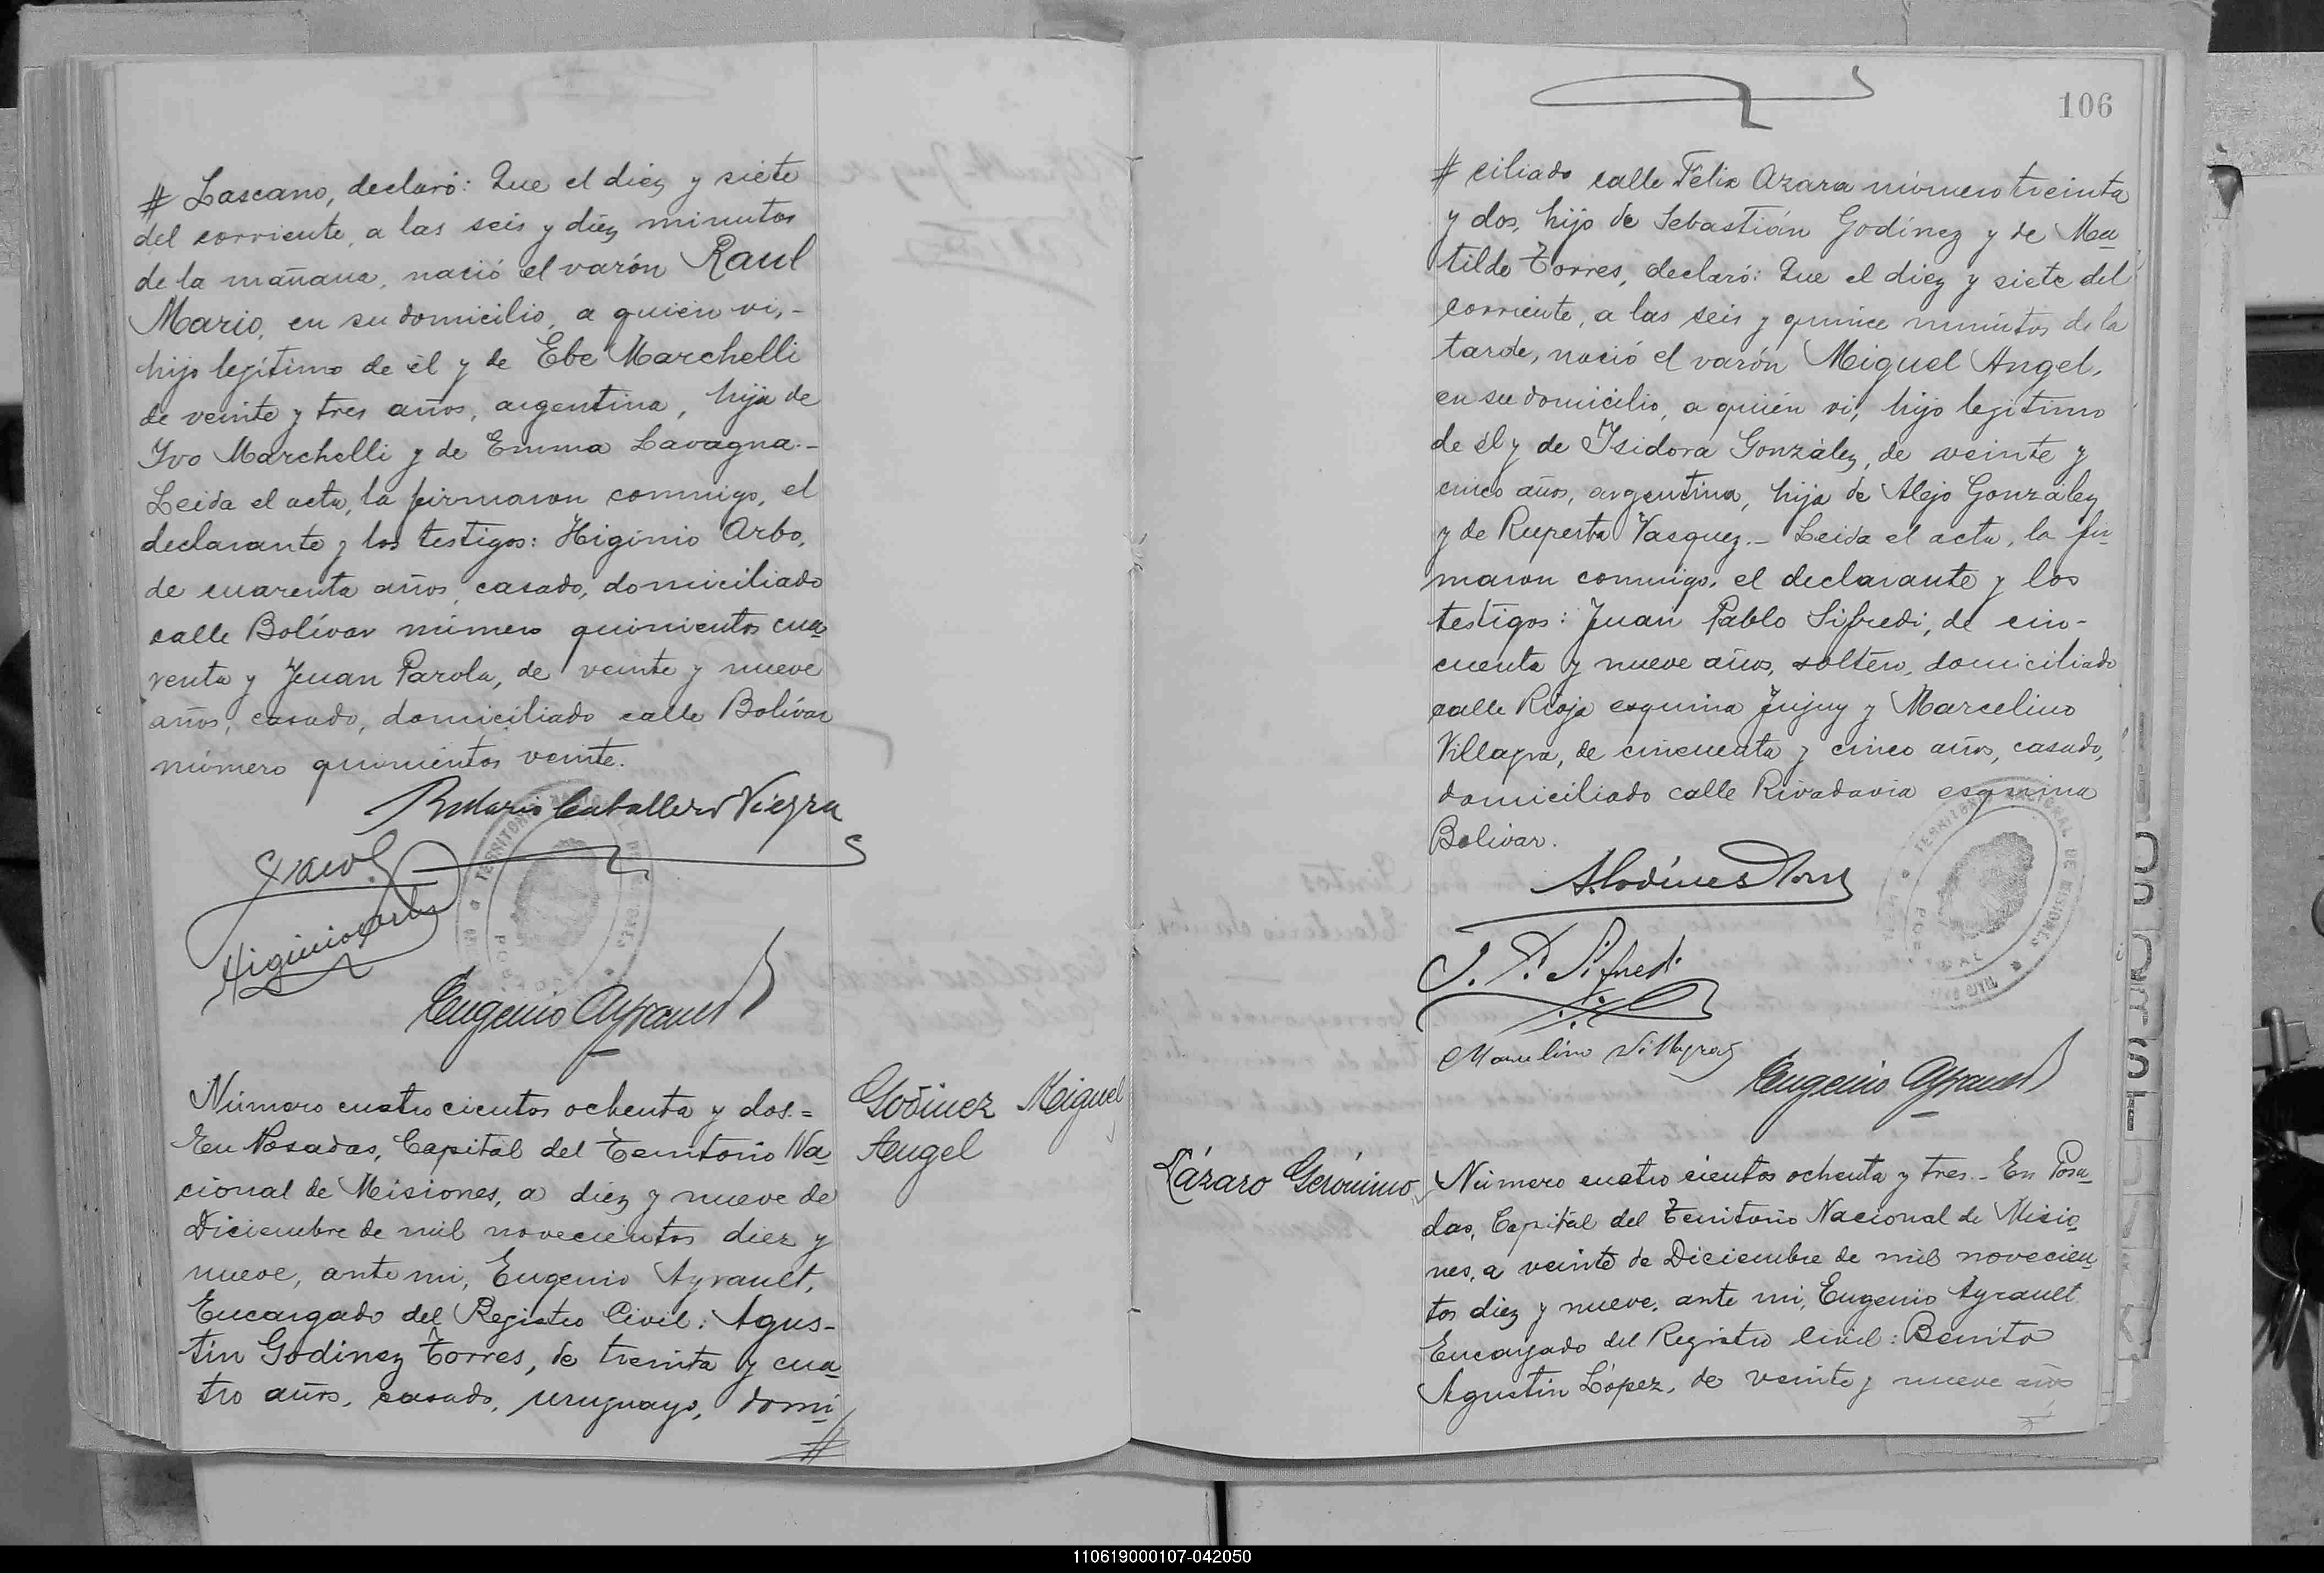 # Lascano, declaró: Que el diez y siete
del corriente, a las seis y diez minutos
de la mañana, nació el varón Raul
Mario, en su domicilio, a quien vi,-
hijo legítimo de él y de Ebe Marchelli
de veinte y tres años, argentina, hija de
Ivo Marchelli y de Emma Lavagna.-
Leida el acta, la firmaron conmigo, el
declarante y los testigos: Higinio Arbo,
de cuarenta años, casado, domiciliado
calle Bolívar número quinientos cua
renta y Juan Parola, de veinte y nueve
años, casado, domiciliado calle Bolívar
número quinientos veinte.
Mario Caballero Vieyra
Higinio Arbo
TERRITORIO
Eugenio Ayrault
Número cuatrocientos ochenta y dos.=
En Posadas, Capital del Territorio Na
cional de Misiones, a diez y nueve de
Diciembre de mil novecientos diez y
nueve, ante mi, Eugenio Ayrault,
Encargado del Registro Civil: Agus-
tín Godinez Torres, de treinta y cua
tro años, casado, uruguayo, domi
#
Godinez Miguel
Angel
106
# ciliado calle Félix Azara número treinta
y dos, hijo de Sebastián Godínez y de Ma
tilde Torres, declaró: Que el diez y siete del
corriente, a las seis y quince minutos de la
tarde, nació el varón Miguel Angel,
en su domicilio, a quien vi, hijo legítimo
de él y de Isidora González, de veinte y
cinco años, argentina, hija de Alejo González
y de Ruperta Vasquez.- Leida el acta, la fir
maron conmigo, el declarante y los
testigos: Juan Pablo Sifredi, de cin-
cuenta y nueve años, soltero, domiciliado
calle Rioja esquina Jujuy y Marcelino
Villagra, de cincuenta y cinco años, casado,
domiciliado calle Rivadavia esquina
Bolivar.
TERRITORIO NACIONAL DE MISIONES
A. Godinez Torres
J. P. Sifredi
Marcelino Villagra
Eugenio Ayrault
Lázaro Gerónimo
Número cuatro cientos ochenta y tres.- En Posa
das, Capital del Territorio Nacional de Misio
nes, a veinte de Diciembre de mil novecien
tos diez y nueve, ante mi, Eugenio Ayrault
Encargado del Registro Civil: Benito
Agustín López, de veinte y nueve años
110619000107-042050